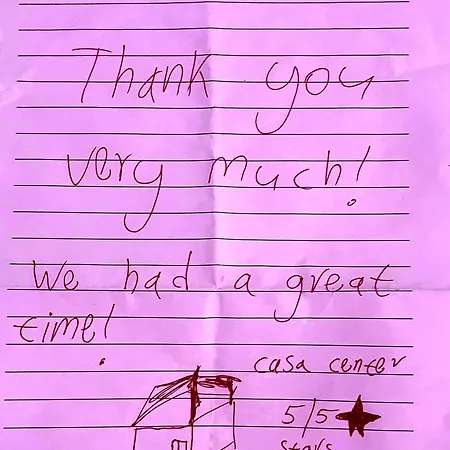 Thank you
very much!
We had a great
time!
casa center
5/5★
stars